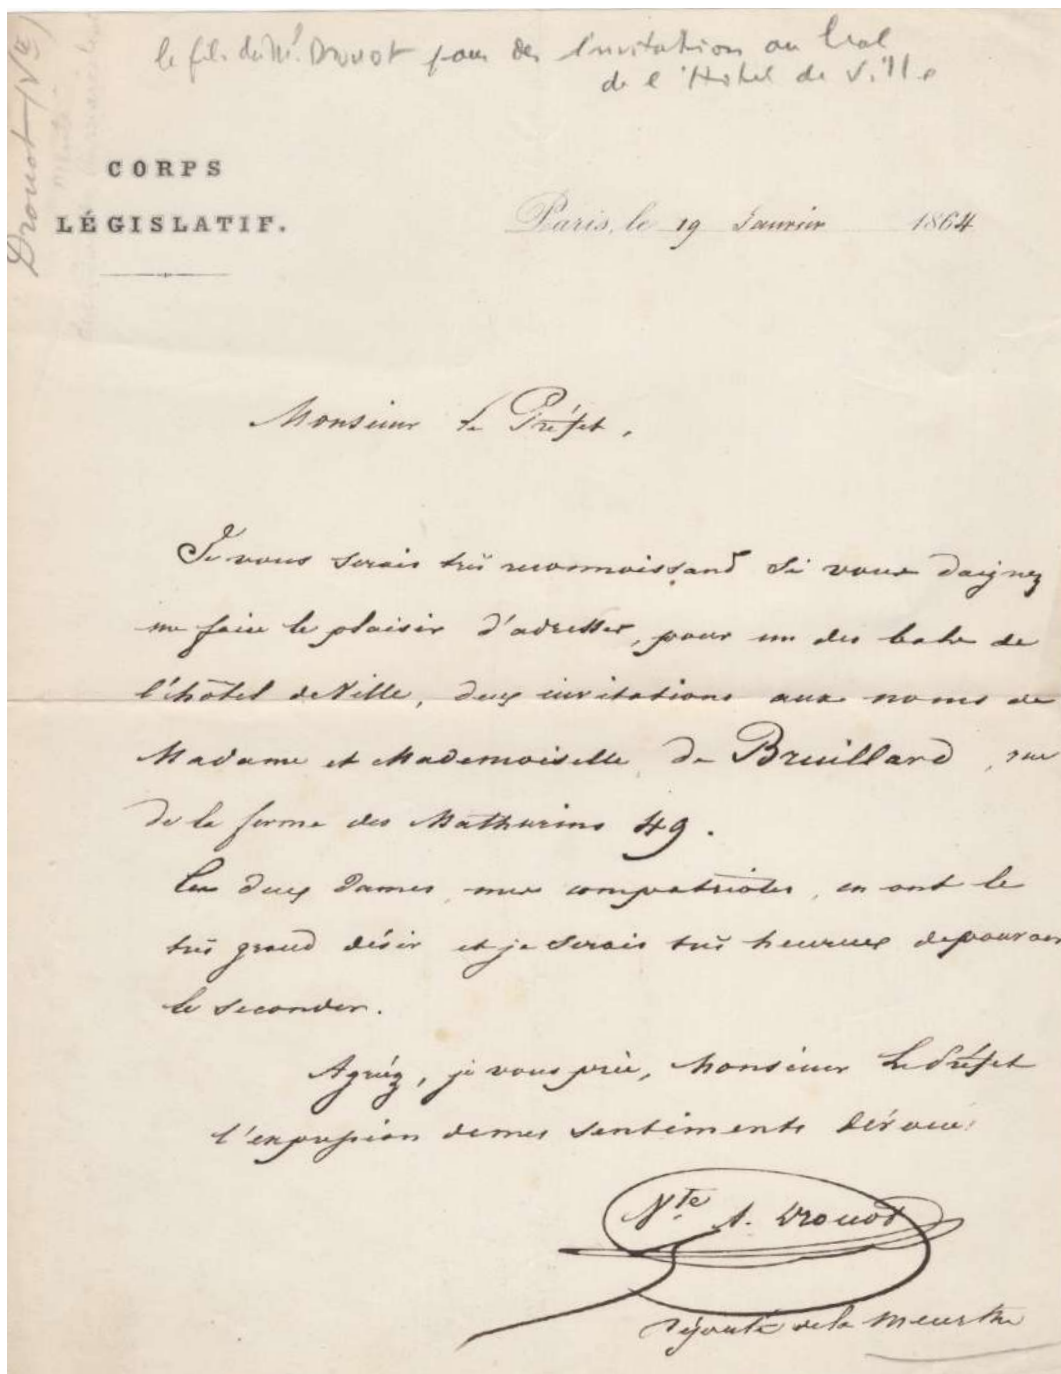 le fils du Mal Drouot pour des invitation au bal
de l'Hotel de Ville
Drouot (Vte)
CORPS
LÉGISLATIF.
Paris, le 19 Janvier 1864
Monsieur le Préfet,
Je vous serais très reconnoissand si vous daignez
me faire le plaisir d'adresser, pour un des bals de
l'hôtel de Ville, deux invitations aux noms de
Madame et Mademoiselle de Bruillard, rue
de la ferme des Mathurins 49.
Ces deux Dames, mes compatriotes, en ont le
très grand désir et je serais très heureux de pouvoir
le seconder.
Agréez, je vous prie, Monsieur Le Préfet
l'expression de mes sentiments dévoués
Vte A. Drouot
Député de la Meurthe